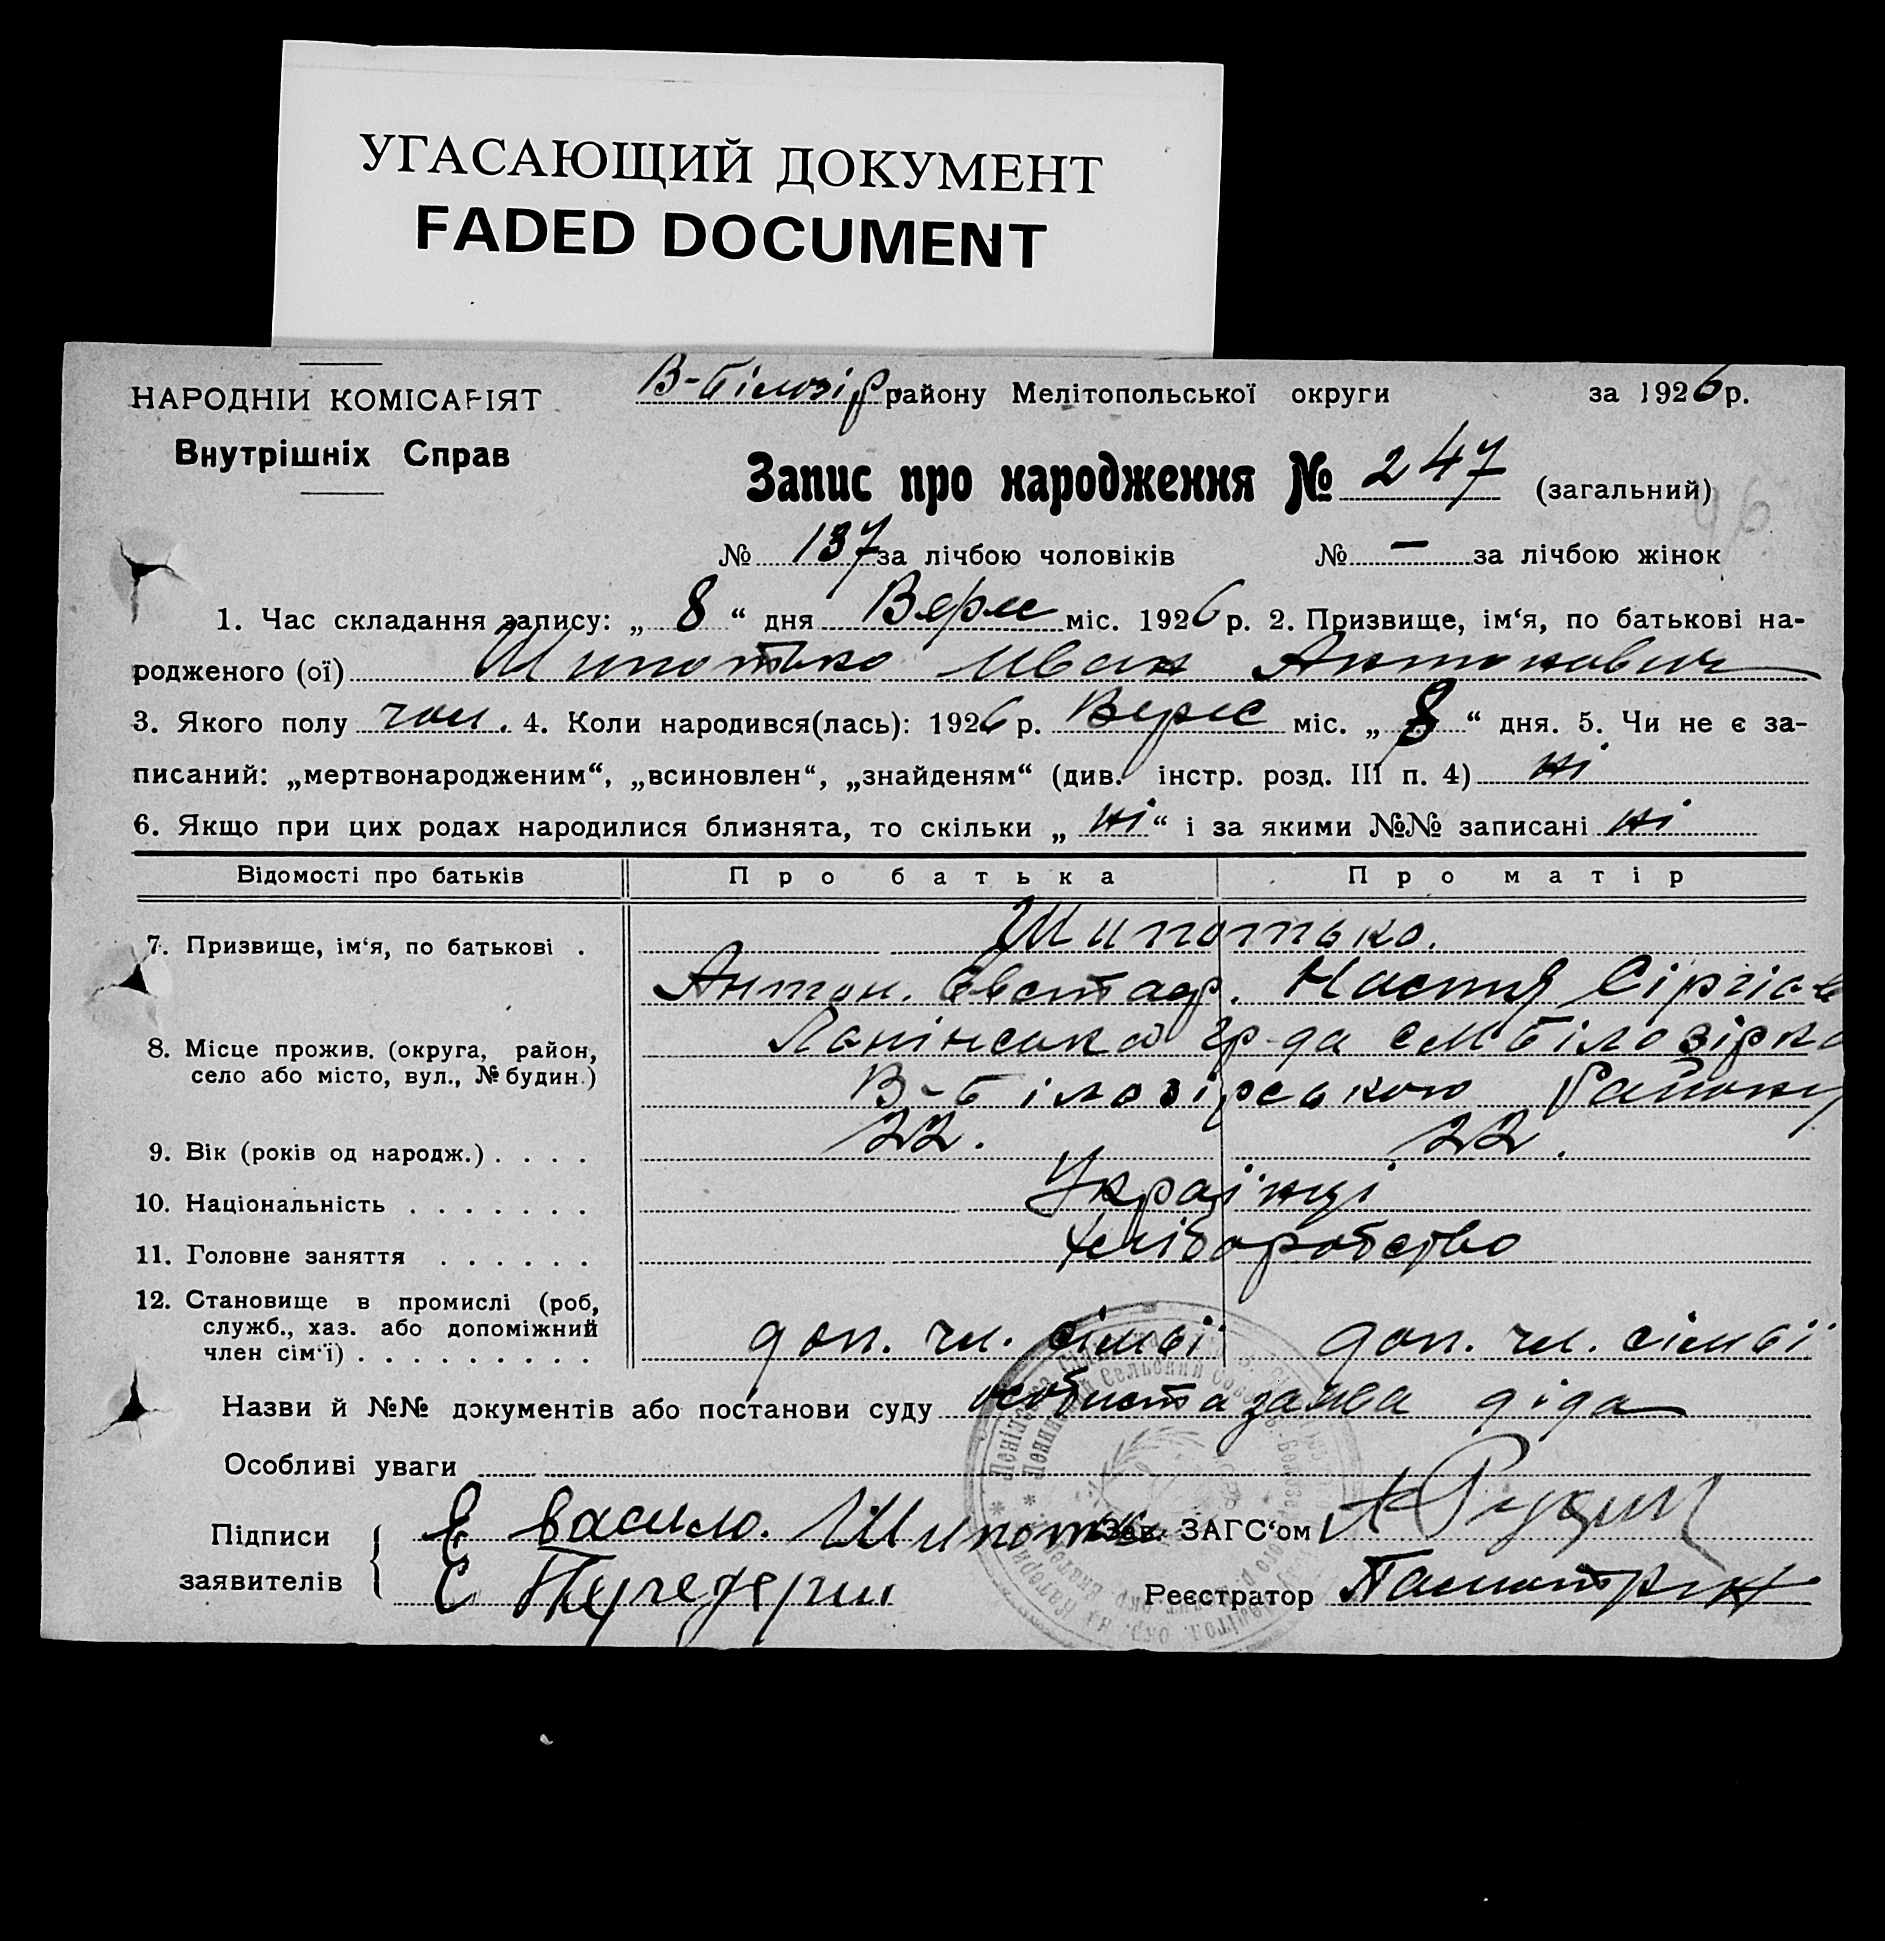 УГАСАЮЩИЙ ДОКУМЕНТ
FADED DOCUMENT
НАРОДНІЙ КОМІСАРІЯТ
Внутрішніх Справ
В-Білозір району Мелітопольської округи за 1926 р.
Запис про народження № 247 (загальний)
№ 137 за лічбою чоловіків № — за лічбою жінок
1. Час складання запису: „ 8 “ дня Верес міс. 1926 р. 2. Призвище, ім‘я, по батькові на-
родженого (ої) Шипотько Иван Антонович
3. Якого полу чол. 4. Коли народився(лась): 1926 р. Верес міс. „ 8 “ дня. 5. Чи не є за-
писаний: „мертвонародженим“, „всиновлен“, „знайденям“ (див. інстр. розд. III п. 4) ні
6. Якщо при цих родах народилися близнята, то скільки „ ні “ і за якими №№ записані ні
Відомості про батьків Про батька Про матір
7. Призвище, ім‘я, по батькові . Шипотько.
Антон. Евстаф. Настя Сіргіев
8. Місце прожив. (округа, район, село або місто, вул., № будин.) Ленінська гр-да см Білозірка
В-Білозірського Району
9. Вік (років од народж.) . . . . 22. 22.
10. Національність . . . . . . . Українці
11. Головне заняття . . . . . . Хліборобство
12. Становище в промислі (роб, служб., хаз. або допоміжний член сім‘ї) . . . . . . . . . доп. чл. сімьї доп. чл. сімьї
Назви й №№ документів або постанови суду особиста заява діда
Особливі уваги
Підписи заявителів
Васило. Шипотько
Зав. ЗАГС‘ом
Реєстратор